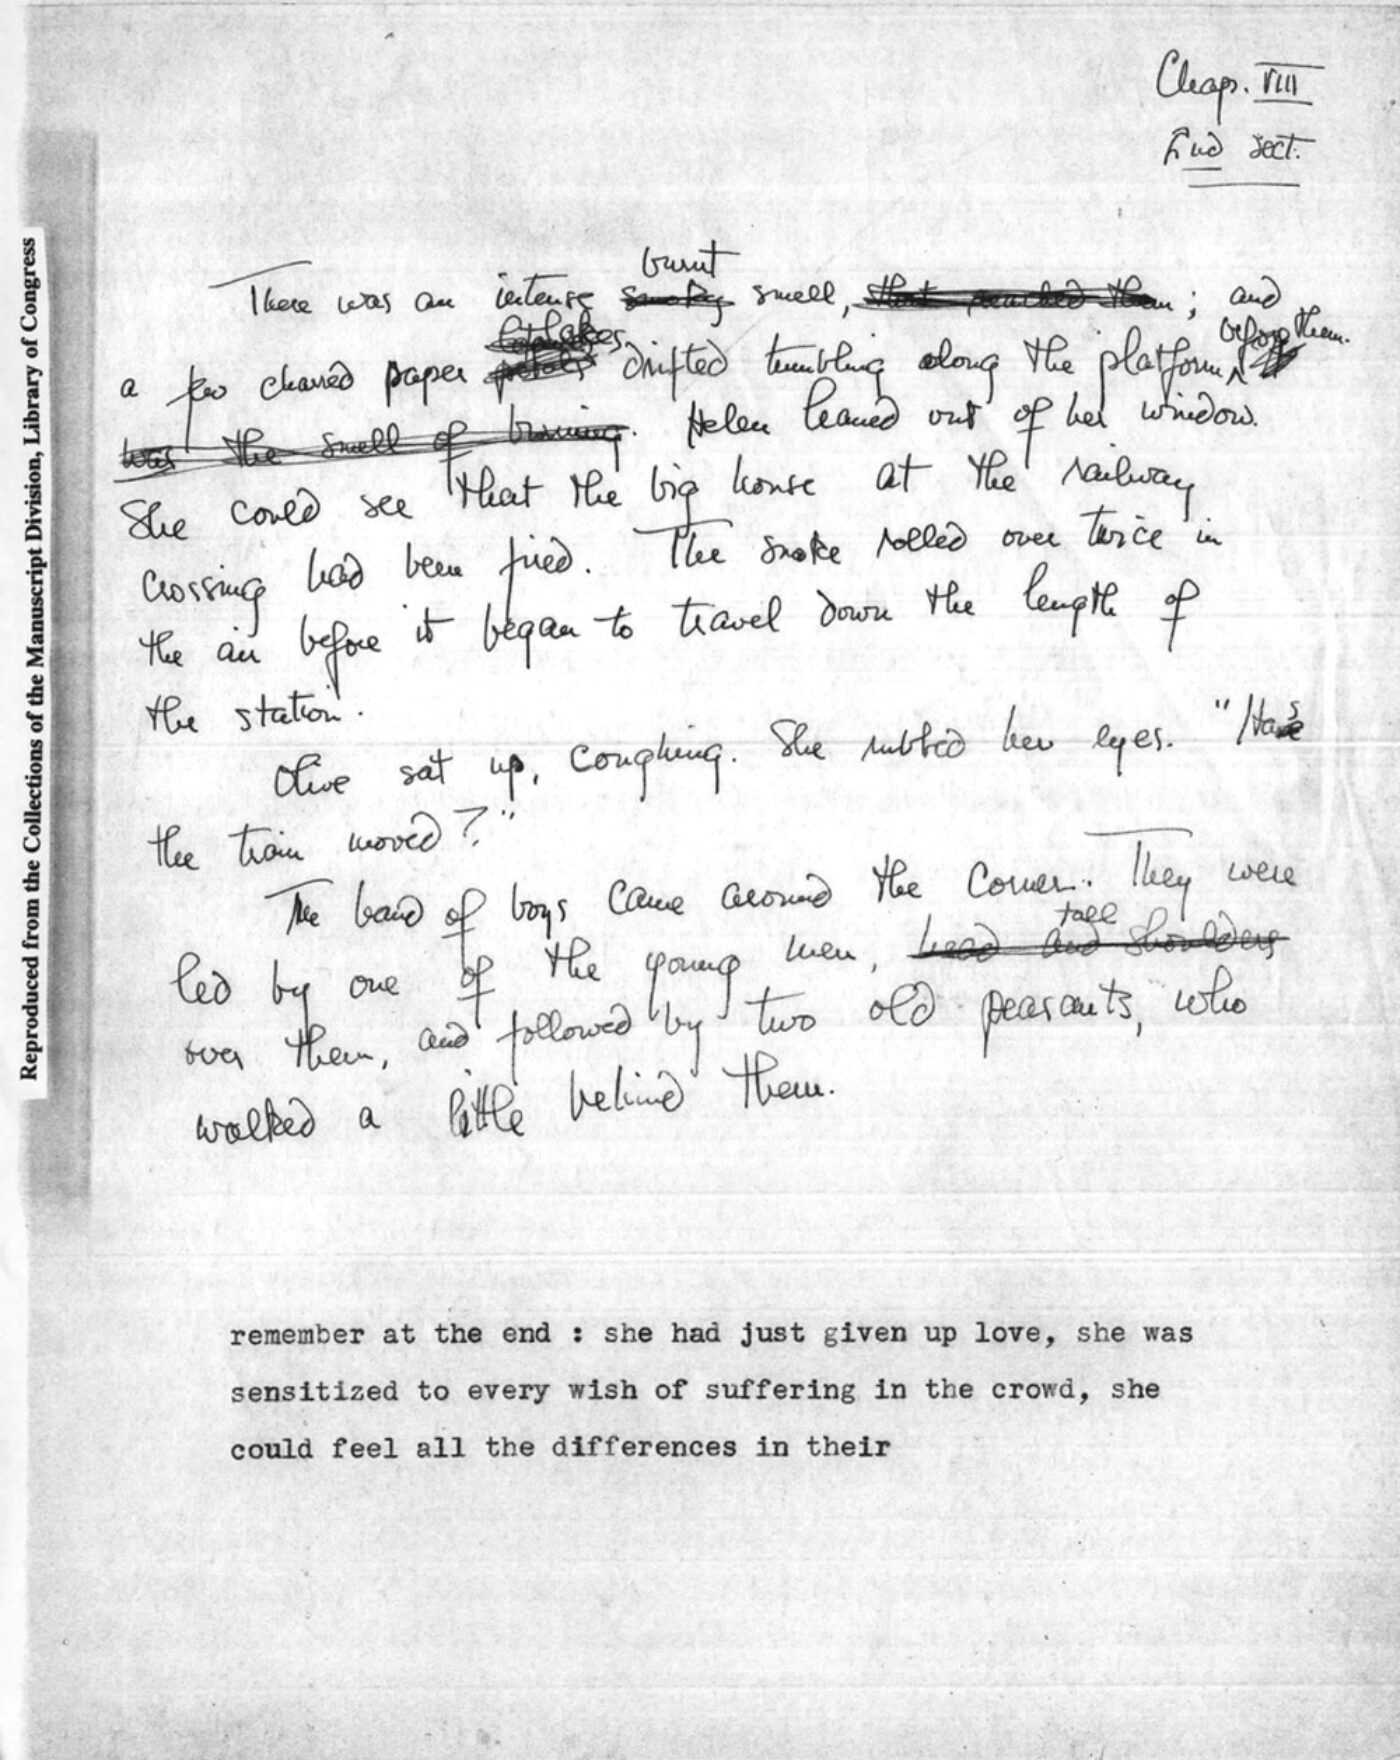 Chap. VIII
End sect.
burnt
There was an intense smoky smell, that reached them; and
before them.
a few charred paper petals drifted tumbling along the platform
was the smell of burning. Helen leaned out of her window.
She could see that the big house at the railway
crossing had been fired. The smoke rolled over twice in
the air before it began to travel down the length of
the station.
Olive sat up, coughing. She rubbed her eyes. "Has
the train moved?"
The band of boys came around the corner. They were
tall
led by one of the young men, head and shoulders
over them, and followed by two old peasants, who
walked a little behind them.
remember at the end : she had just given up love, she was
sensitized to every wish of suffering in the crowd, she
could feel all the differences in their
Reproduced from the Collections of the Manuscript Division, Library of Congress